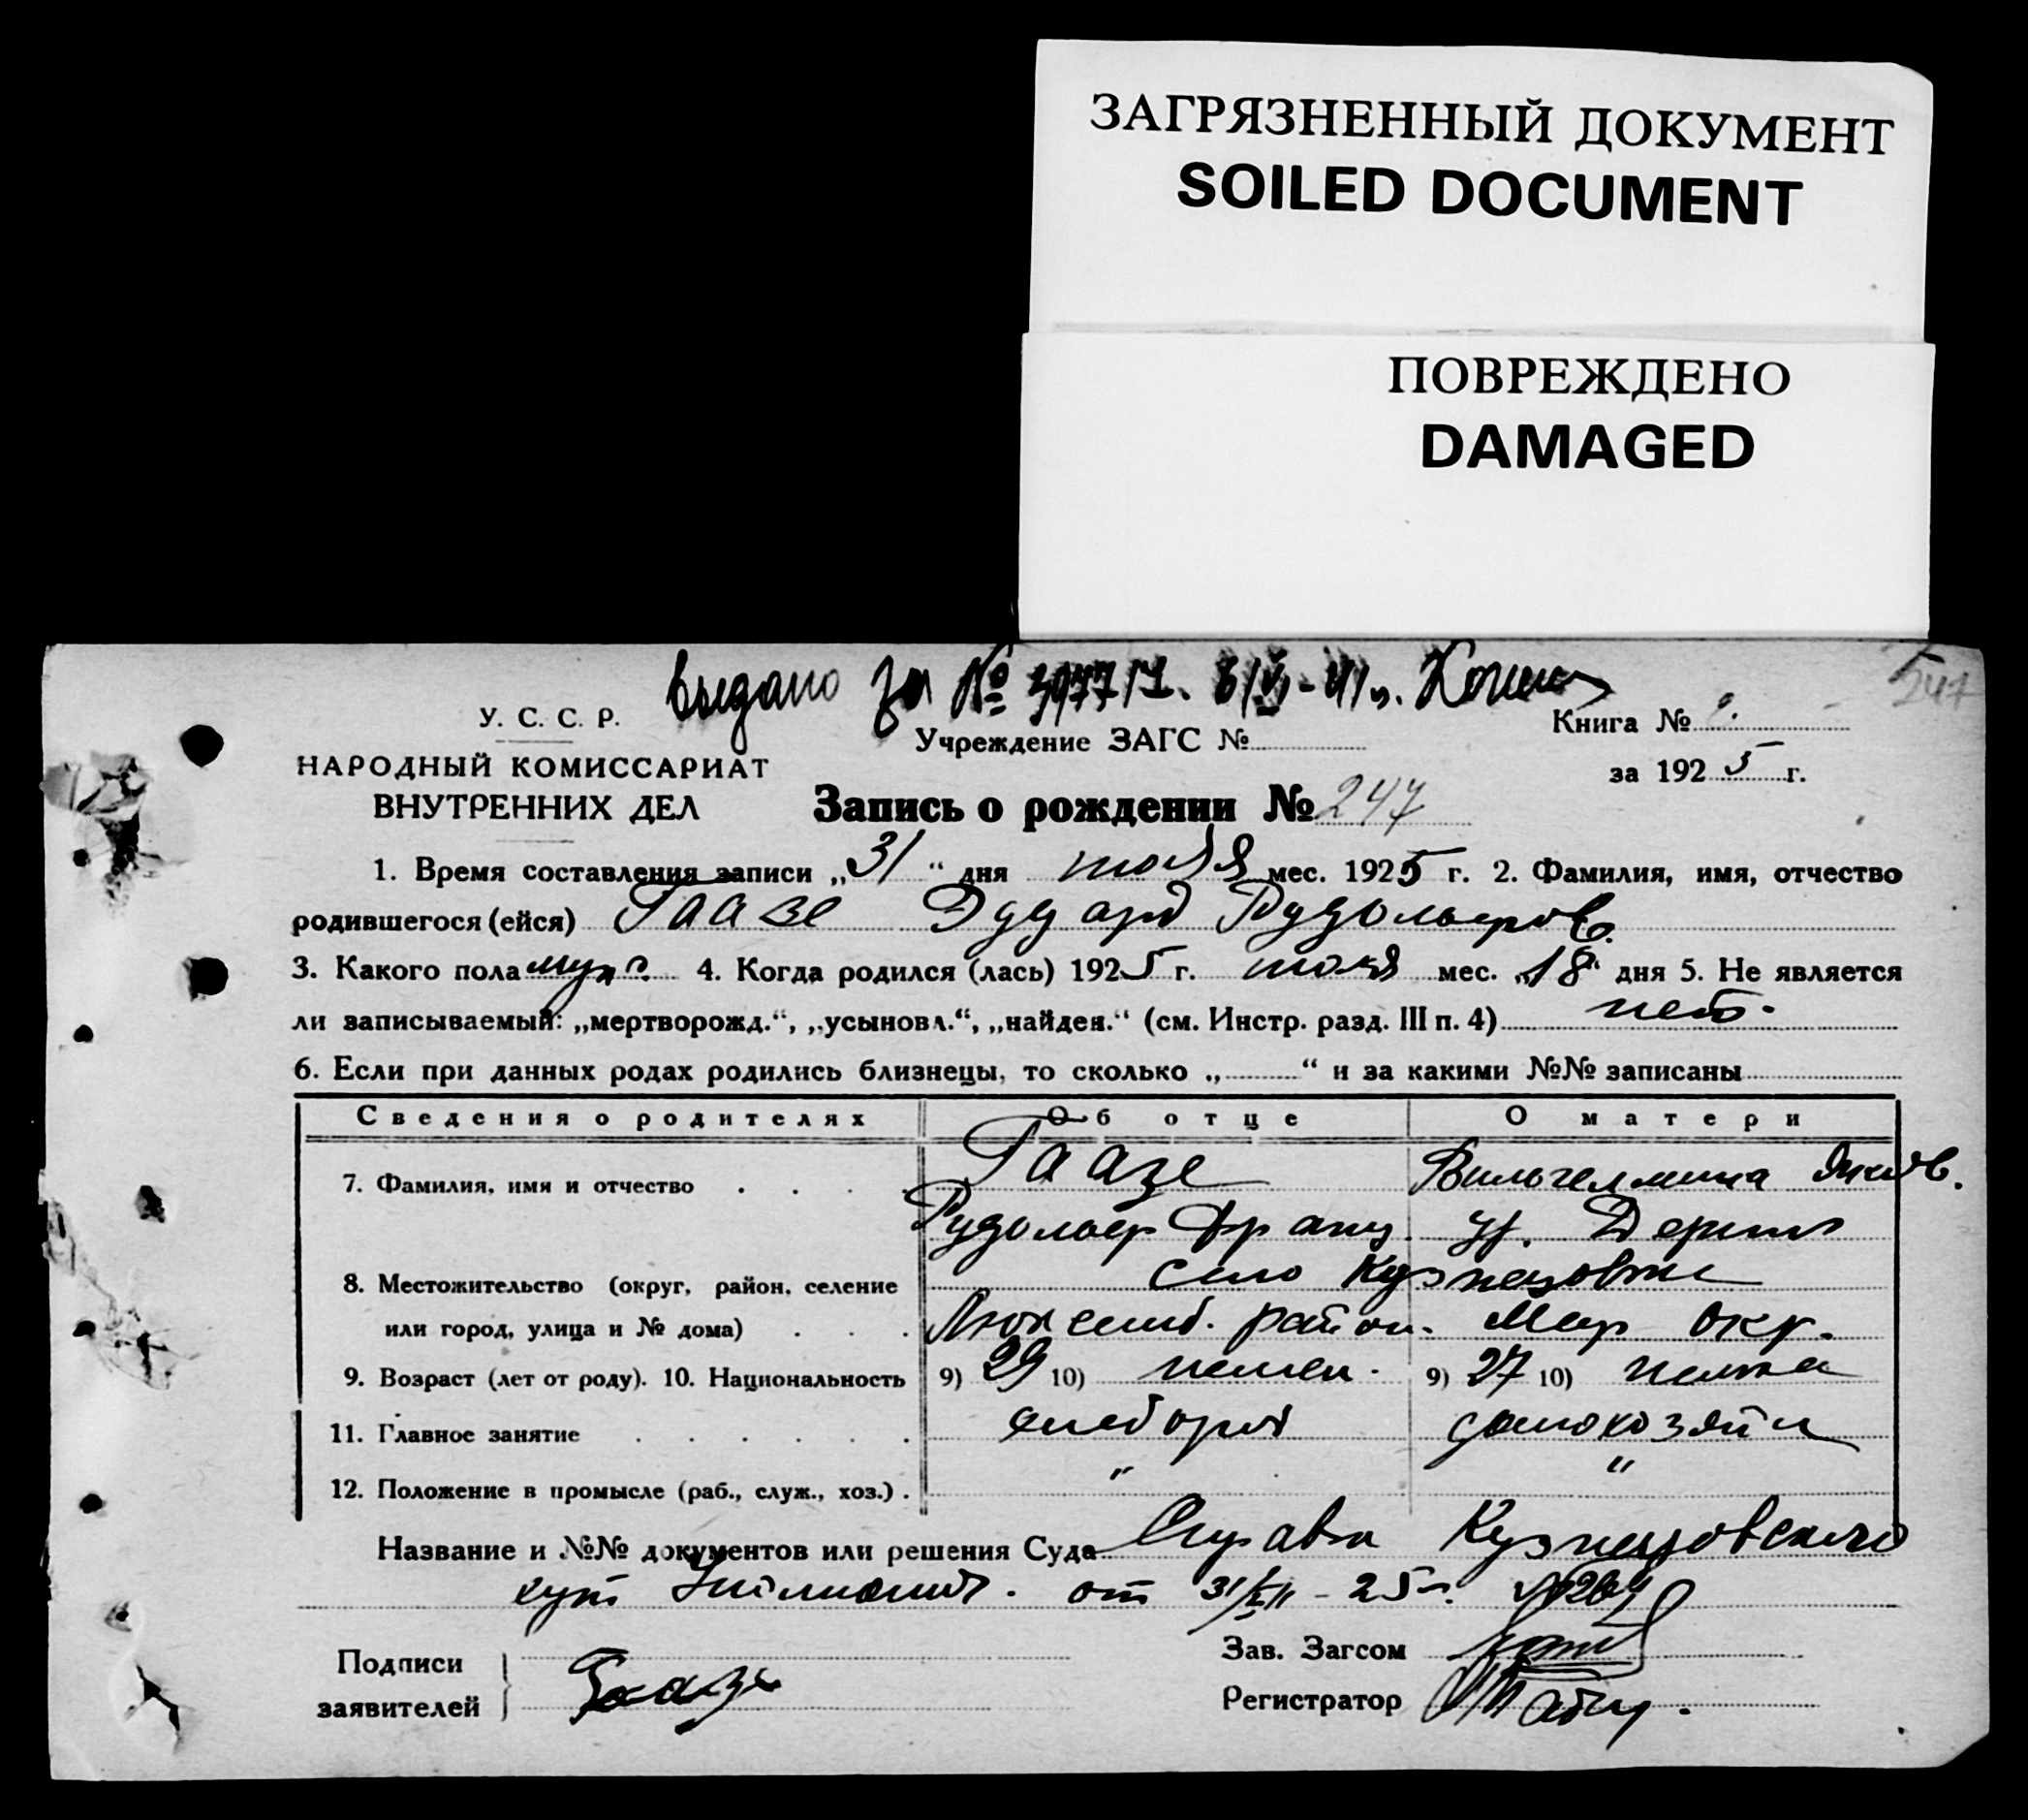 ЗАГРЯЗНЕННЫЙ ДОКУМЕНТ
SOILED DOCUMENT
ПОВРЕЖДЕНО
DAMAGED
Выдано за № 3977/1.
547
У. С. С. Р.
Учреждение ЗАГС №
Книга №
НАРОДНЫЙ КОМИССАРИАТ
за 1925 г.
ВНУТРЕННИХ ДЕЛ
Запись о рождении № 247
1. Время составления записи „31“ дня июля мес. 1925 г. 2. Фамилия, имя, отчество
родившегося (ейся) Гаазе Эдуард Рудольфов.
3. Какого пола муж. 4. Когда родился (лась) 1925 г. июля мес. „18“ дня 5. Не является
ли записываемый: „мертворожд.“, „усыновл.“, „найден.“ (см. Инстр. разд. III п. 4) нет.
6. Если при данных родах родились близнецы, то сколько „ “ и за какими №№ записаны
Сведения о родителях Об отце О матери
7. Фамилия, имя и отчество Гаазе Вильгелмина Яков.
Рудольф Франц. ур.
8. Местожительство (округ, район, селение село Кузнецовки
или город, улица и № дома) Люксемб. район. Мар окр.
9. Возраст (лет от роду). 10. Национальность 9) 29 10) немец. 9) 27 10) немка
11. Главное занятие хлебороб домохозяйк
12. Положение в промысле (раб., служ., хоз.) . " "
Название и №№ документов или решения Суда Справка Кузнецовского
от 31/VII - 25 г. №
Подписи
заявителей
Гаазе
Зав. Загсом
Регистратор